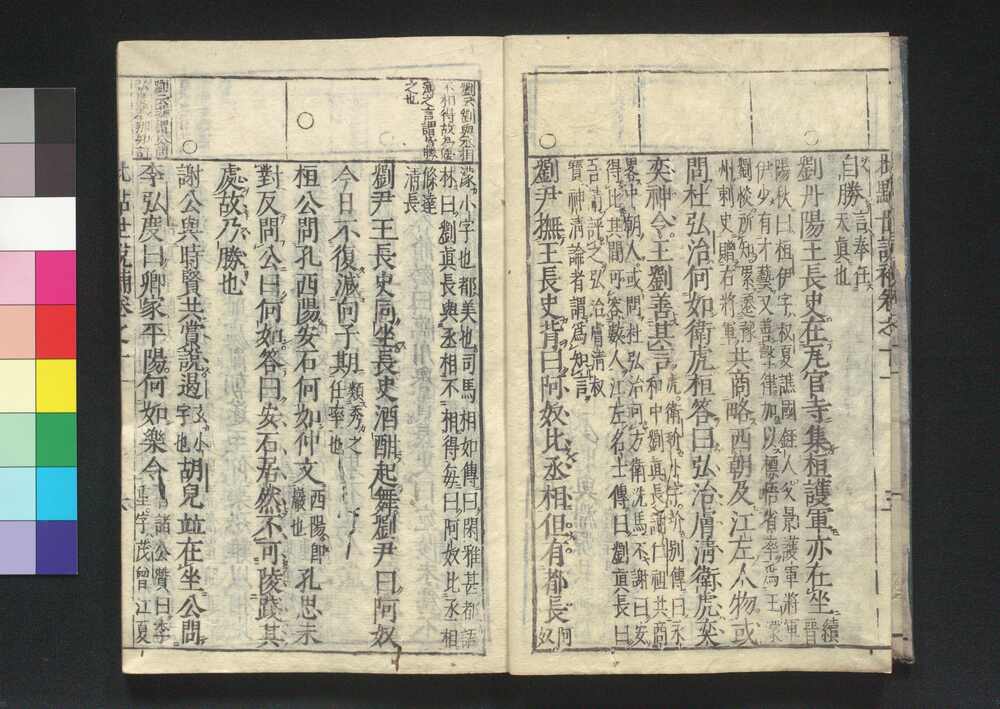 批點世說補卷之十一
言奉任
自勝天真也
劉丹陽王長史在瓦官寺集桓護軍亦在坐續晉
陽秋曰桓伊字叔夏譙國銍人父景護軍將軍
伊少有才藝又善聲律加以標悟省率爲王濛
劉惔所知累遷豫
州刺史贈右將軍共商略西朝及江左人物或
問杜弘治何如衛虎桓答曰弘治膚清衛虎奕
奕神令王劉善其言虎衛玠小字玠別傳曰永
和中劉眞長謝仁祖共商
畧中朝人或問杜弘治可方衛洗馬不謝曰安
得比其間可容數人江左名士傳曰劉眞長曰
吾請評之弘治膚清叔
寶神清論者謂爲知言
劉尹撫王長史背曰阿奴比丞相但有都長阿奴
濛小字也都美也司馬相如傳曰閑雅甚都語
林曰劉眞長與丞相不相得每曰阿奴比丞相
條達
清長
劉尹王長史同坐長史酒酣起舞劉尹曰阿奴
今日不復減向子期類秀之
任率也
桓公問孔西陽安石何如仲文西陽即
巖也孔思未
對反問公曰何如答曰安石居然不可陵踐其
處故乃勝也
謝公與時賢共賞說遏玄小
字也胡兒並在坐公問
李弘度曰卿家平陽何如樂令諸公贊曰李
重字茂曾江夏